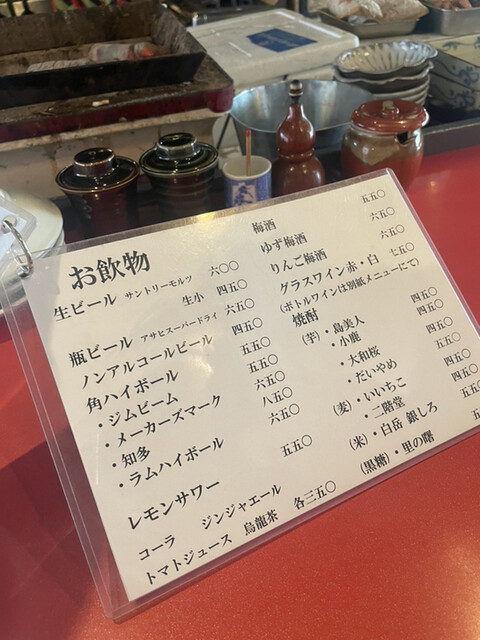 お飲物
生ビール サントリーモルツ 六〇〇
生小 四五〇
瓶ビール アサヒスーパードライ 六五〇
ノンアルコールビール 四五〇
角ハイボール 五五〇
・ジムビーム 五五〇
・メーカーズマーク 六五〇
・知多 八五〇
・ラムハイボール 六五〇
レモンサワー 五五〇
コーラ ジンジャエール
トマトジュース 烏龍茶 各三五〇
梅酒 五五〇
ゆず梅酒 六五〇
りんご梅酒 六五〇
グラスワイン赤・白 七五〇
(ボトルワインは別紙メニューにて)
焼酎
(芋)・島美人 四五〇
・小鹿 四五〇
・大和桜 五五〇
・だいやめ 五五〇
(麦)・いいちこ 四五〇
・二階堂 四五〇
(米)・白岳 銀しろ
(黒糖)・里の曙